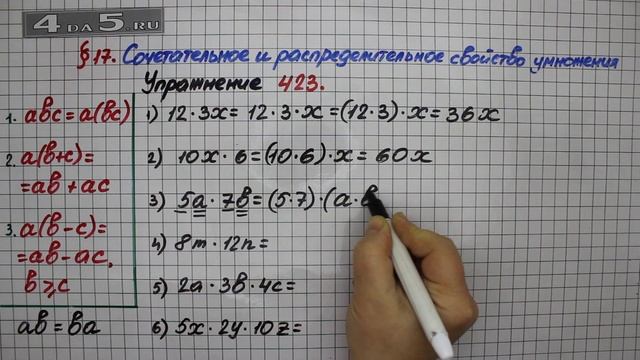 4DA5.RU
§17. Сочетательное и распределительное свойство умножения
Упражнение 423.
1. abc = a(bc)
2. a(b+c) =
= ab + ac
3. a(b-c) =
= ab - ac,
b ⩾ c
ab = ba
1) 12·3x = 12·3·x = (12·3)·x = 36x
2) 10x·6 = (10·6)·x = 60x
3) 5a·7b = (5·7)·(a·b
4) 8m·12n =
5) 2a·3b·4c =
6) 5x·2y·10z =